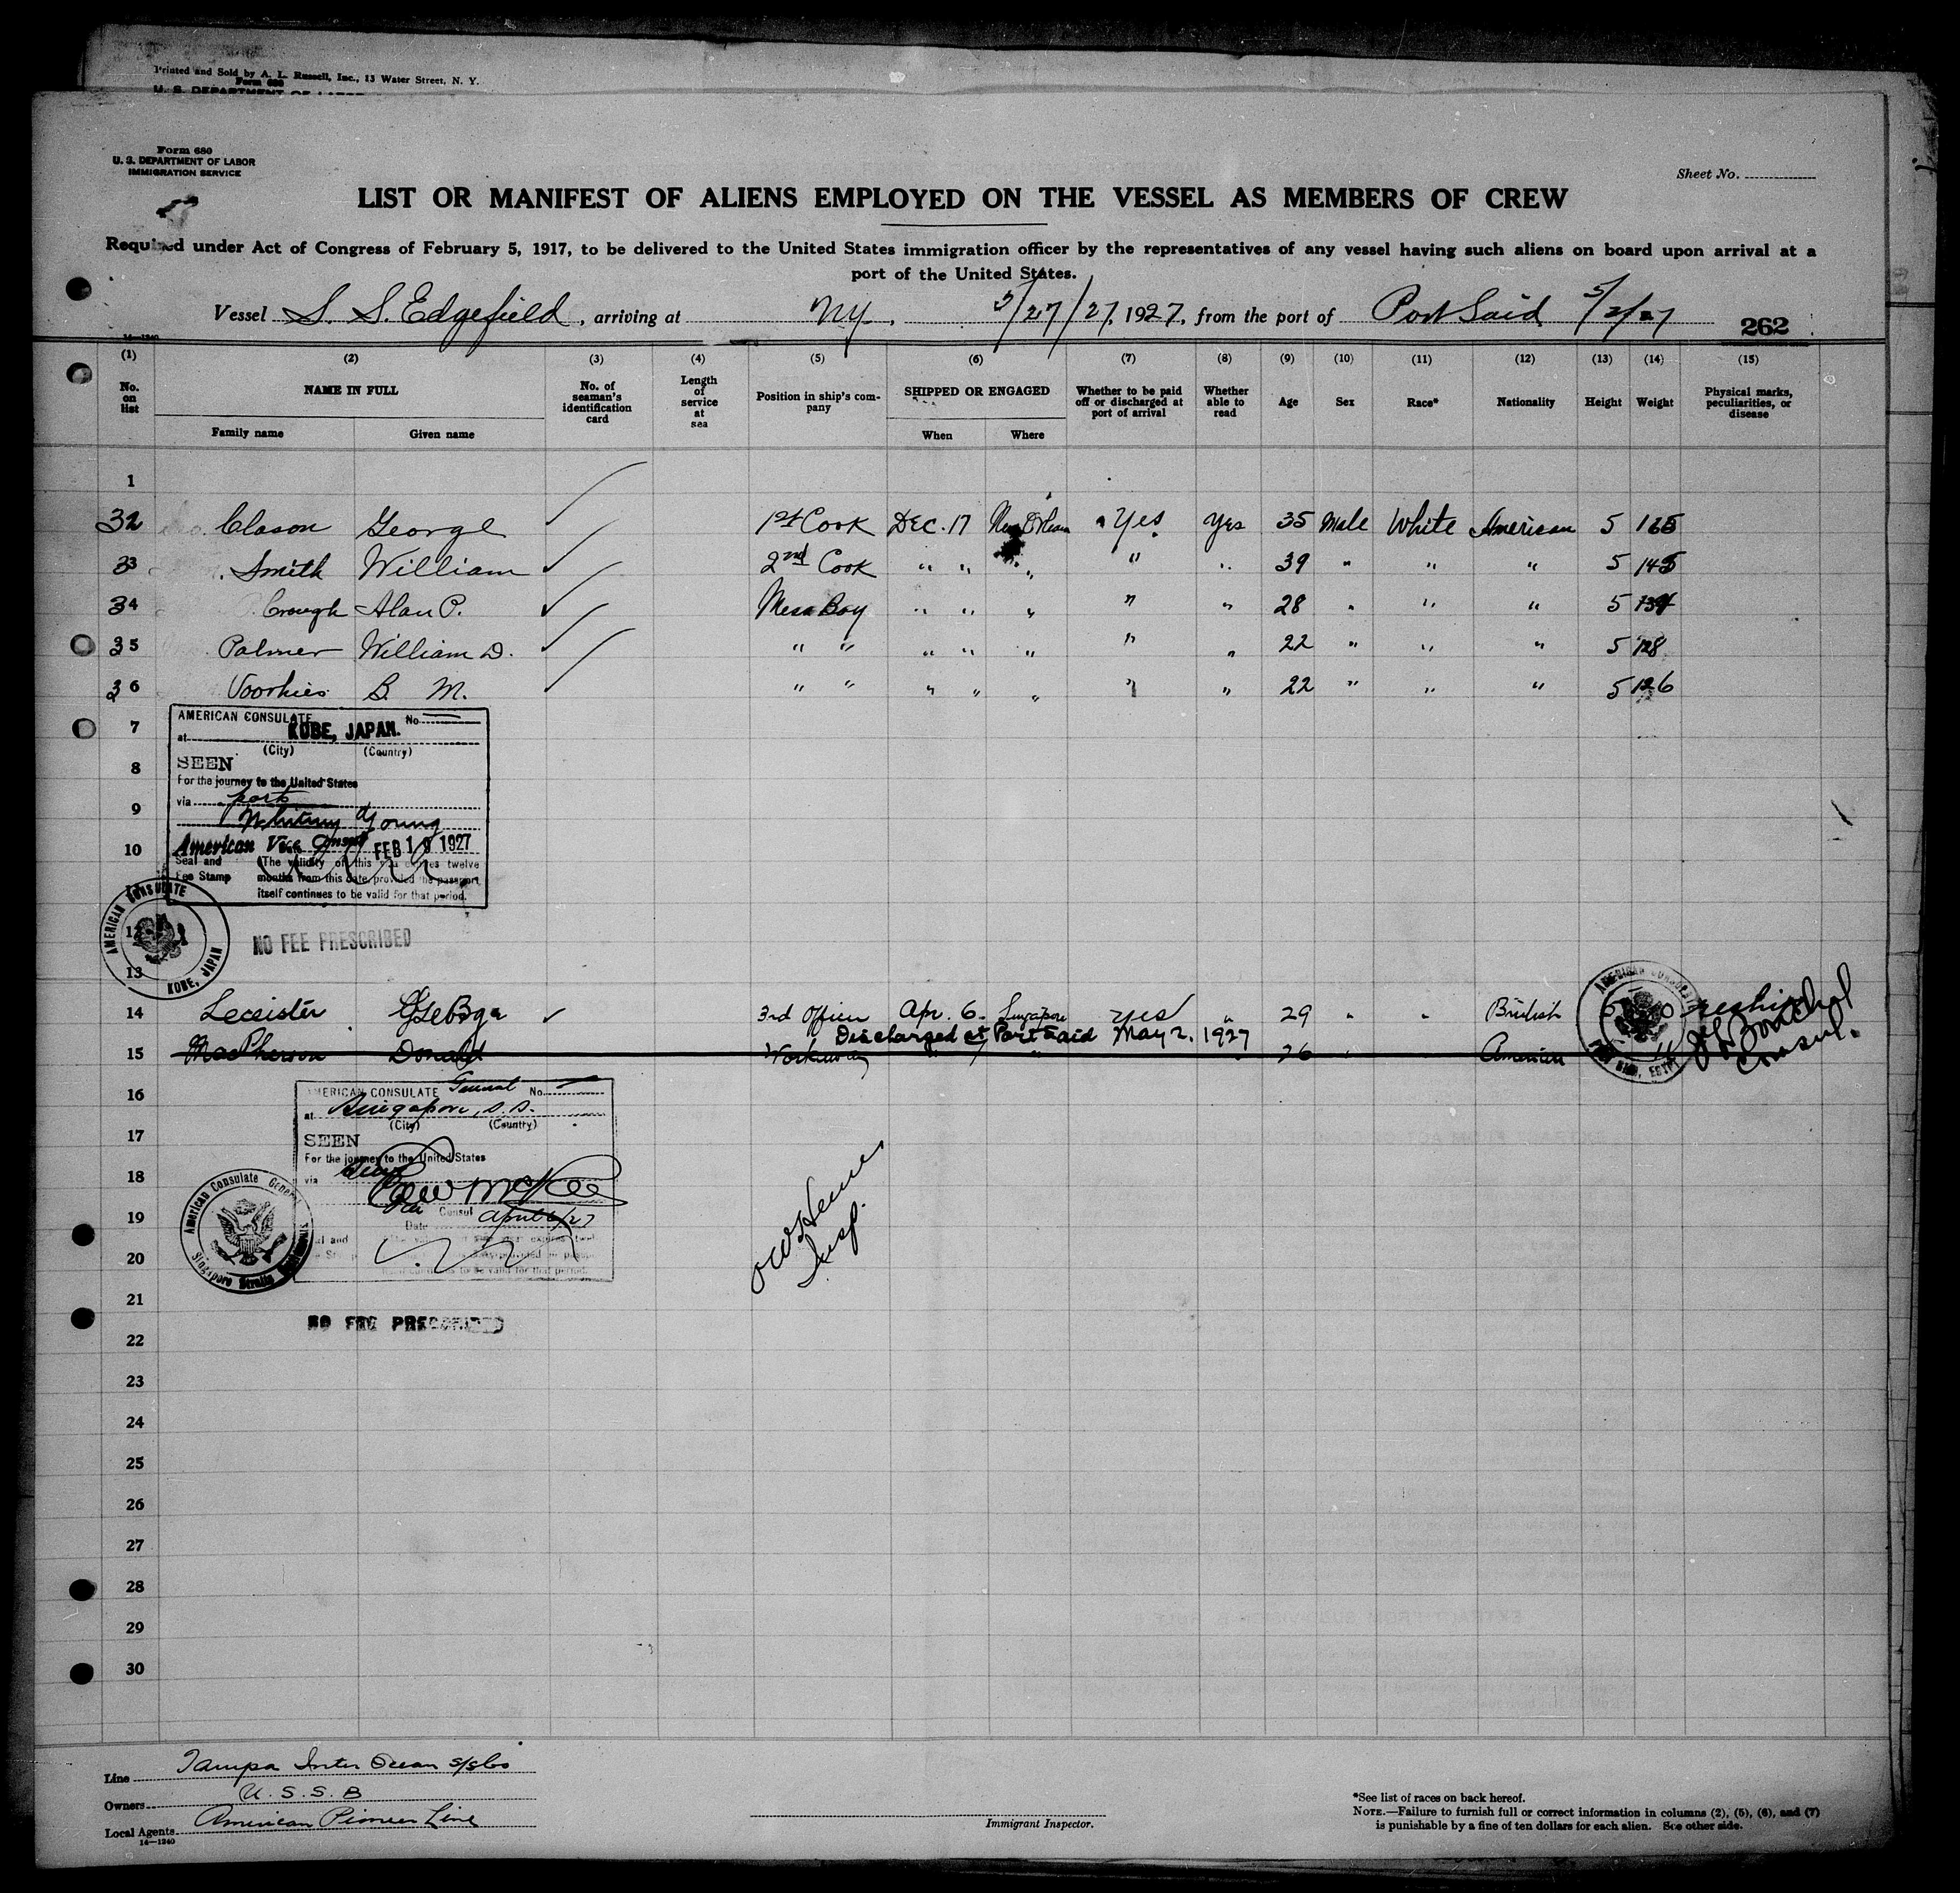 Printed and Sold by A. L. Russell, Inc., 13 Water Street, N. Y.
Form 680
U. S. DEPARTMENT OF LABOR
Form 680
U. S. DEPARTMENT OF LABOR
IMMIGRATION SERVICE
Sheet No.
LIST OR MANIFEST OF ALIENS EMPLOYED ON THE VESSEL AS MEMBERS OF CREW
Required under Act of Congress of February 5, 1917, to be delivered to the United States immigration officer by the representatives of any vessel having such aliens on board upon arrival at a
port of the United States.
Vessel S. S. Edgefield, arriving at NY., 5/27/27, 1927, from the port of Port Said 5/2/27
262
14-1240
(1) (2) (3) (4) (5) (6) (7) (8) (9) (10) (11) (12) (13) (14) (15)
No. on list NAME IN FULL No. of seaman's identification card Length of service at sea Position in ship's company SHIPPED OR ENGAGED Whether to be paid off or discharged at port of arrival Whether able to read Age Sex Race* Nationality Height Weight Physical marks, peculiarities, or disease
Family name Given name When Where
1
32 Clason George 1st Cook Dec. 17 New Orleans Yes Yes 35 Male White American 5 165
33 Smith William 2nd Cook " " " " " 39 " " " 5 145
34 Crough Alan P. Mess Boy " " " " " 28 " " " 5 134
35 Palmer William D. " " " " " " " 22 " " " 5 128
36 Voorhies B. M. " " " " " " " 22 " " " 5 126
7
AMERICAN CONSULATE No.
at KOBE, JAPAN.
(City) (Country)
8
SEEN
For the journey to the United States
9
via ports
Whitney Young
10
American Vice Consul FEB 19 1927
Seal and Fee Stamp
(The validity of this visa expires twelve
months from this date, provided the passport
itself continues to be valid for that period.
AMERICAN CONSULATE KOBE, JAPAN
12
NO FEE PRESCRIBED
13
14 Leceister George 3rd Officer Apr. 6. Singapore yes " 29 " " British
Discharged at Port Said May 2. 1927
15 MacPherson Donald Workaway " " 26 " American
AMERICAN CONSULATE PORT SAID, EGYPT
Consul.
16
AMERICAN CONSULATE General No.
at Singapore, S.S.
(City) (Country)
17
SEEN
For the journey to the United States
18
via
Consul
19
Date April 6/27
American Consulate General Singapore Straits Settlements
20
valid for that period.
Insp.
21
NO FEE PRESCRIBED
22
23
24
25
26
27
28
29
30
Line Tampa Inter Ocean S/S Co
Owners U. S. S. B
Local Agents American Pioneer Line
14-1240
Immigrant Inspector.
*See list of races on back hereof.
NOTE.—Failure to furnish full or correct information in columns (2), (5), (6), and (7)
is punishable by a fine of ten dollars for each alien. See other side.